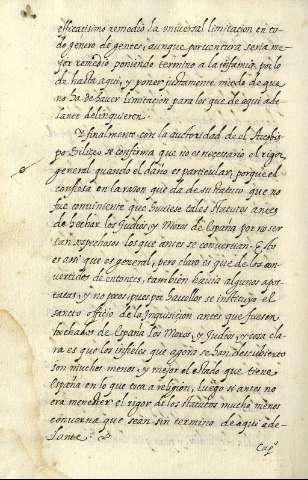 efficacissimo remedio la vniuersal limitacion en to-
do genero de gentes, aunque por ventura seria me-
jor remedio poniendo termino a la infamia, por lo
de hasta aqui, y poner juntamente miedo de que
no ha de hauer limitacion para los que de aqui ade-
lante delinquieren.
Y finalmente con la auctoridad de el Arcobis-
po Siliceo se confirma que no es necesario el rigor
general quando el daño es particular, porque el
confiesa en la razon que da de su statuto, que no
fue conuiniente que huuiese tales statutos antes
de hechar los Judios, y Moros de España por no ser
tan sospechosos los que antes se conuertian. Esto
es ansi que es general, pero claro es que de los con-
uertidos de entonces, tambien hauia algunos apos-
tatas, y no pocos, pues por hauellos se instituyo el
sancto officio de la Inquisicion antes que fuesen
hechados de España los Moros, y Judios, y cosa cla-
ra es que los infieles que agora se han descubierto
son muchos menos, y mejor el estado que tiene
España en lo que toca a religion, luego si antes no
era menester el rigor de los statutos mucho menos
conuerna que sean sin termino de aqui ade-
lante.
Cap.